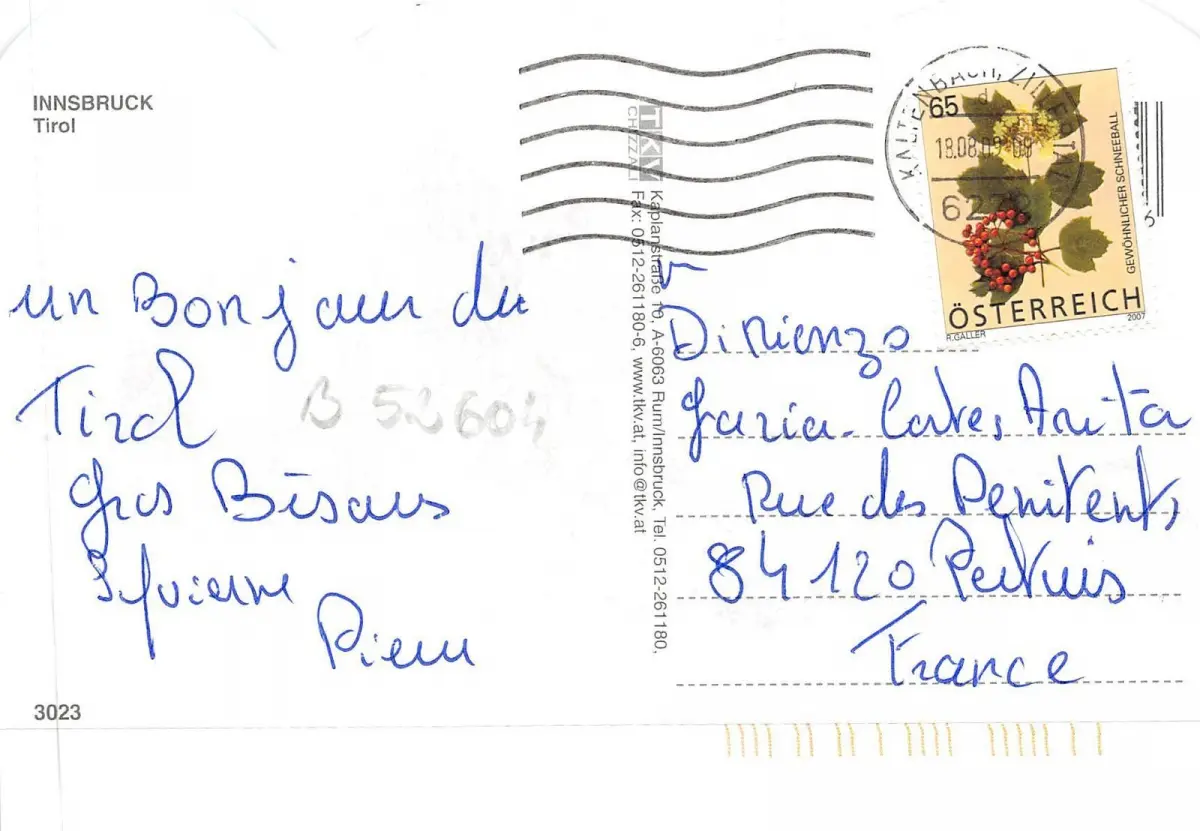 INNSBRUCK
Tirol
un Bonjour du
Tirol
Gros Bisous
Sylvienne
Pierre
B 52604
3023
TKV
CHIZZALI
Kaplanstraße 10, A-6063 Rum/Innsbruck, Tel. 0512-261180,
Fax: 0512-261180-6, www.tkv.at, info@tkv.at
KALTENBACH, ZILLERTAL
18.08.09-09
65
GEWÖHNLICHER SCHNEEBALL
ÖSTERREICH
R.GALLER
2007
Dirienzo
Garcia-Cortes Anita
Rue des Penitents
84120 Pertuis
France